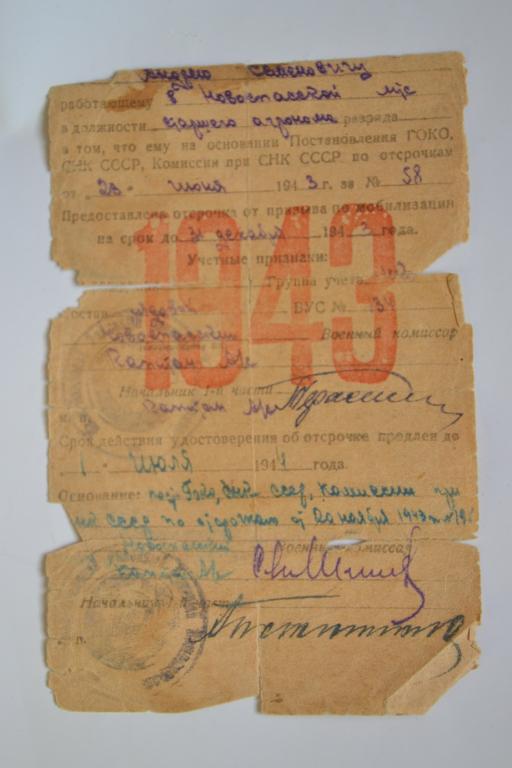 Андрею Семеновичу
работающему в Новоспасской мтс
в должности старшего агронома разряда
в том, что ему на основании Постановления ГОКО,
СНК СССР, Комиссии при СНК СССР по отсрочкам
от 23 июня 1943 г. за № 58
Предоставлена отсрочка от призыва по мобилизации
на срок до 31 декабря 1943 года.
1943
Учетные признаки:
Группа учета
Состав рядовой ВУС № 134
Новоспасский Военный комиссар
капитан
Начальник 1-й части
капитан
м. п.
Срок действия удостоверения об отсрочке продлен до
1 июля 1944 года.
Основание: пост. Гоко, снк ссср, Комиссии при
снк ссср по от 20 ноября 1943 г.
Новоспасский Военный комиссар
капитан
Начальник 1-й части
п.